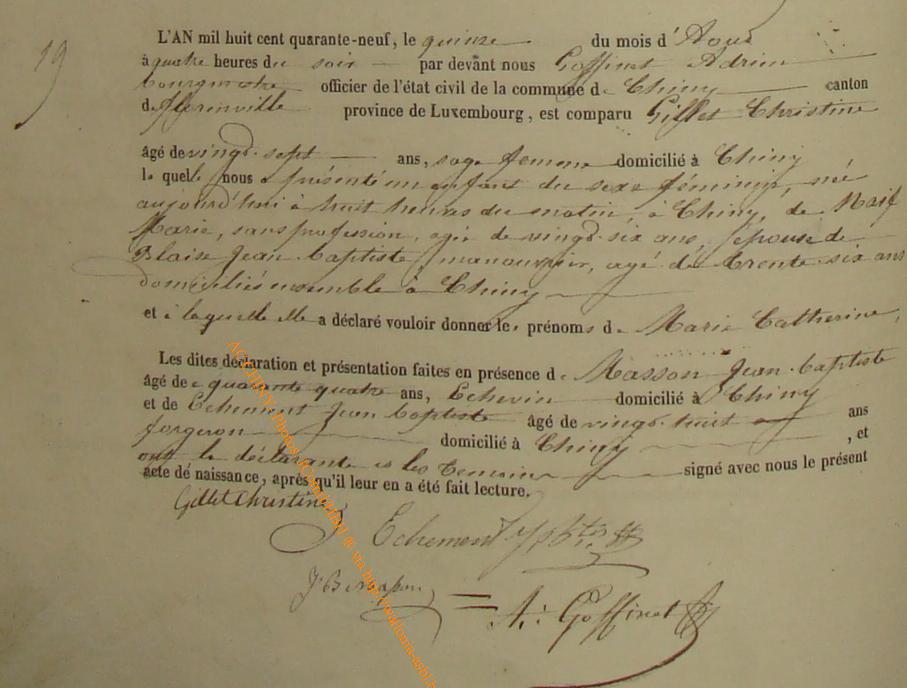 19
L'AN mil huit cent quarante-neuf, le quinze du mois d'Aout
à quatre heures du soir par devant nous Goffinet Adrien
bourgmestre officier de l'état civil de la commune de Chiny canton
de florenville province de Luxembourg, est comparu Gillet Christine
âgé de vingt-sept ans, sage femme domicilié à Chiny
la quelle nous a présenté un enfant du sexe féminin, née
aujourd'hui à huit heures du matin, à Chiny, de Naif
Marie, sans profession, agée de vingt-six ans, épouse de
Blaise Jean baptiste, manouvrier, agé de trente-six ans
domiciliés ensemble à Chiny
et à laquelle elle a déclaré vouloir donner les prénoms de Marie Catherine,
Les dites déclaration et présentation faites en présence de Masson Jean-baptiste
âgé de quarante quatre ans, Echevin domicilié à Chiny
et de Echement Jean baptiste âgé de vingt-huit ans
forgeron domicilié à Chiny, et
ont la déclarante et les temoins signé avec nous le présent
acte de naissance, après qu'il leur en a été fait lecture.
Gillet Christine
Echement
J B masson
A. Goffinet